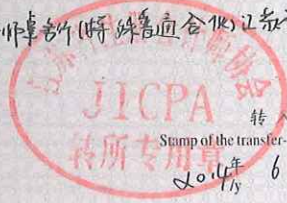 师事务所(特殊普通合伙)江苏
JICPA
转所专用章
转入
Stamp of the transfer-
2014年 6
/y